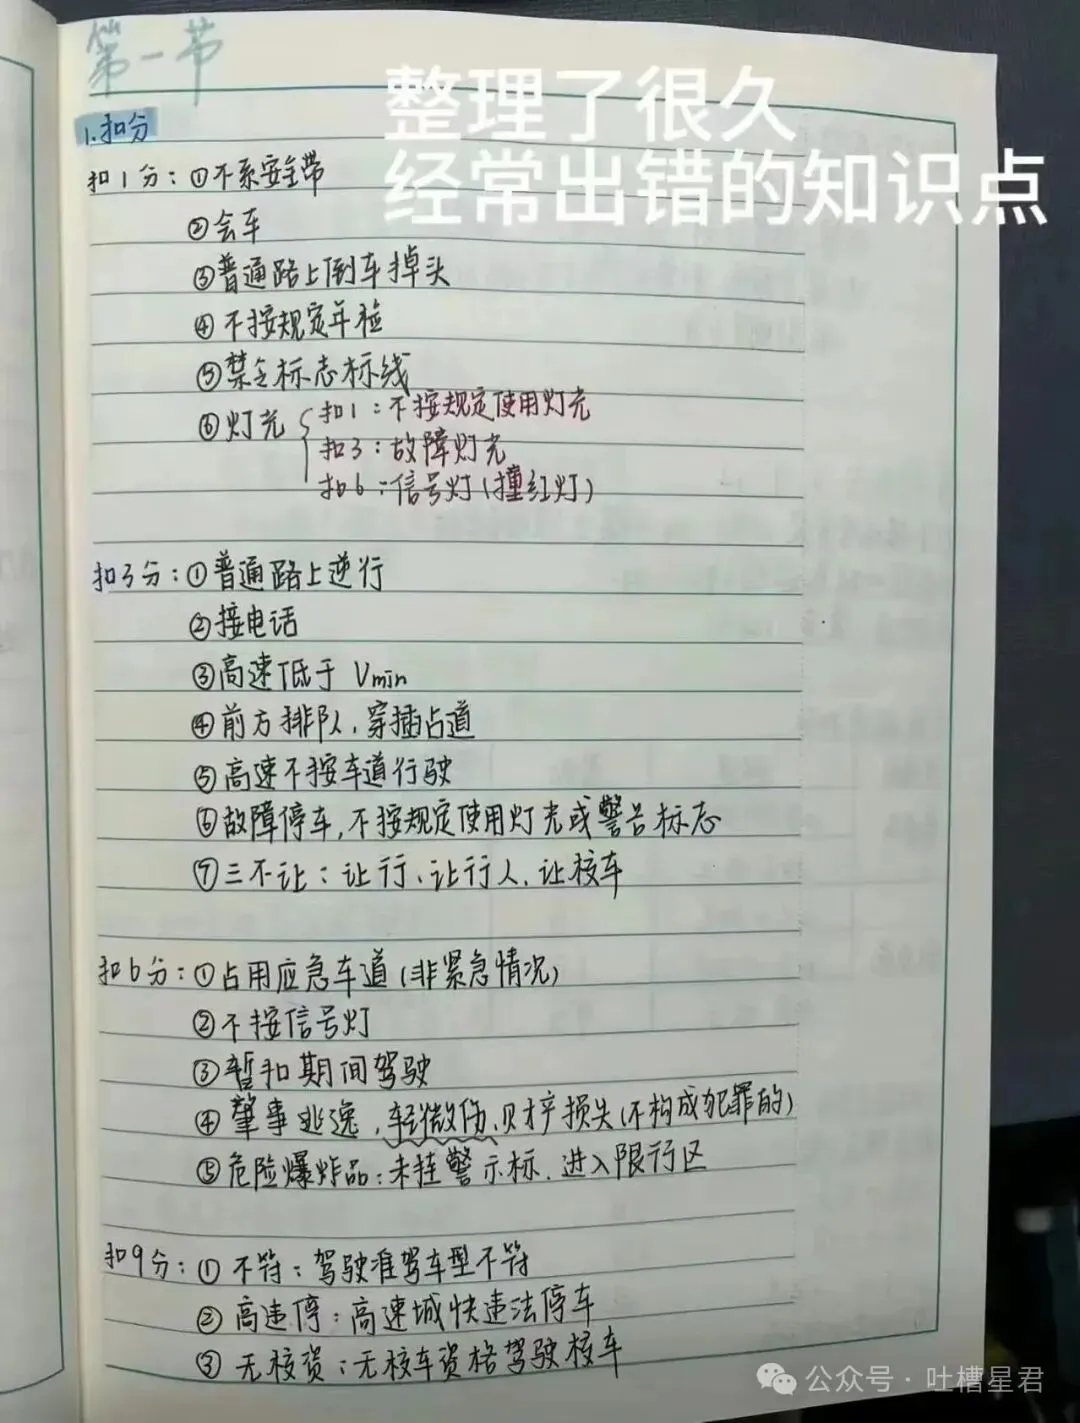 第一节
整理了很久
经常出错的知识点
1.扣分
扣1分：①不系安全带
②会车
③普通路上倒车掉头
④不按规定年检
⑤禁令标志标线
⑥灯光
扣1：不按规定使用灯光
扣3：故障灯光
扣6：信号灯(撞红灯)
扣3分：①普通路上逆行
②接电话
③高速低于 Vmin
④前方排队、穿插占道
⑤高速不按车道行驶
⑥故障停车,不按规定使用灯光或警告标志
⑦三不让：让行、让行人、让校车
扣6分：①占用应急车道(非紧急情况)
②不按信号灯
③暂扣期间驾驶
④肇事逃逸、轻微伤、财产损失(不构成犯罪的)
⑤危险爆炸品：未挂警示标、进入限行区
扣9分：①不符：驾驶准驾车型不符
②高违停：高速城快违法停车
③无校资：无校车资格驾驶校车
公众号·吐槽星君